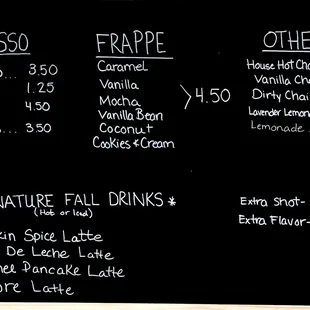 SSO
... 3.50
1.25
4.50
... 3.50
FRAPPE
Caramel
Vanilla
Mocha
Vanilla Bean
Coconut
Cookies & Cream
4.50
OTHE
House Hot Cho
Vanilla Cha
Dirty Chai
Lavender Lemona
Lemonade
NATURE FALL DRINKS *
(Hot or Iced)
kin Spice Latte
De Leche Latte
nel Pancake Latte
ore Latte
Extra Shot-
Extra Flavor-